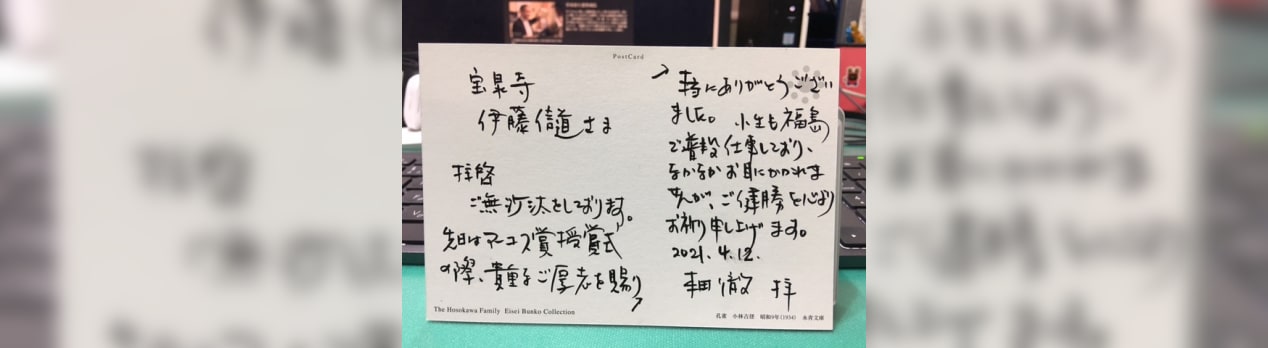 PostCard
宝泉寺
伊藤信道さま
拝啓
ご無沙汰をしております。
先日はアーユス賞授賞式
の際、貴重なご厚志を賜り
本当にありがとうござい
ました。小生も福島
で普段仕事しており、
なかなかお目にかかれま
せんが、ご健勝を心より
お祈り申し上げます。
2021.4.12.
本田徹 拝
The Hosokawa Family Eisei Bunko Collection
孔雀 小林古径 昭和9年(1934) 永青文庫